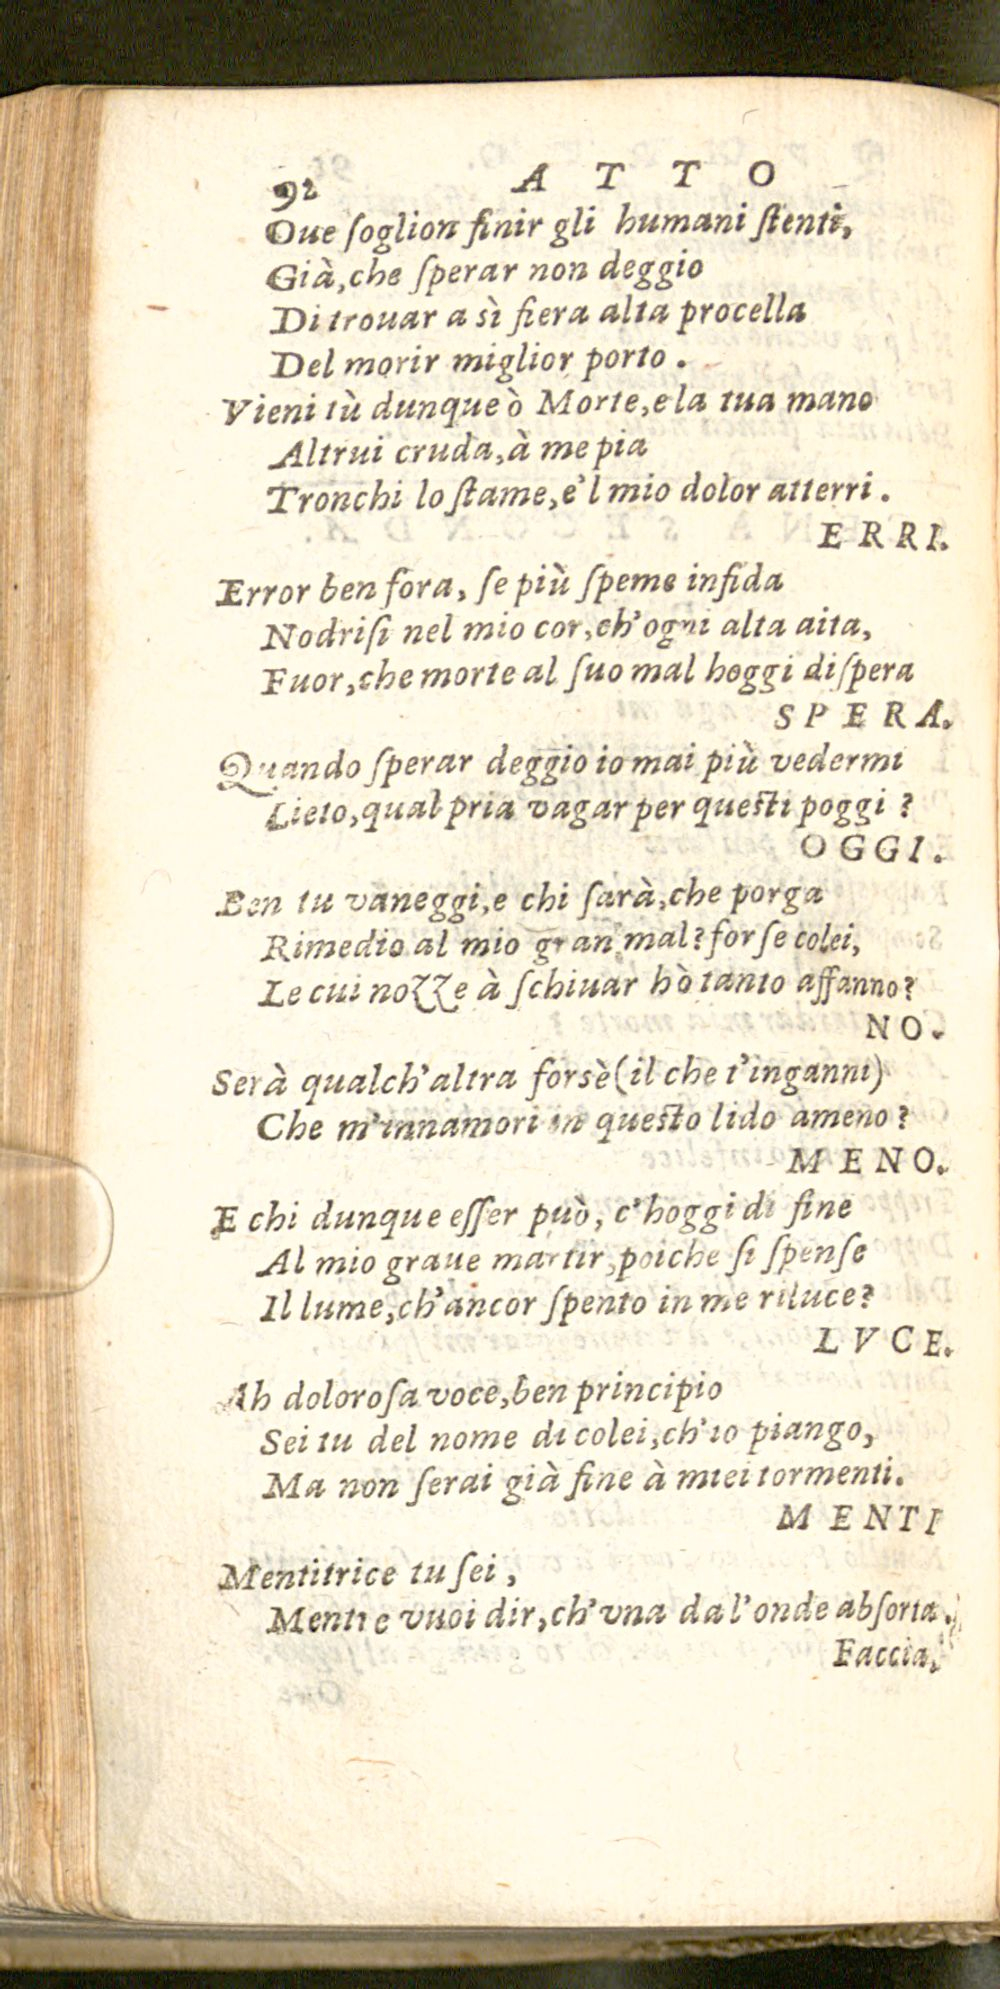 92 ATTO
Oue ſoglion finir gli humani ſtenti,
Già, che ſperar non deggio
Di trouar a sì fiera alta procella
Del morir miglior porto.
Vieni tù dunque ò Morte, e la tua mano
Altrui cruda, à me pia
Tronchi lo ſtame, e'l mio dolor atterri.
ERRI.
Error ben fora, ſe più ſpeme infida
Nodriſi nel mio cor, ch'ogni alta aita,
Fuor, che morte al ſuo mal hoggi diſpera
SPERA.
Quando ſperar deggio io mai più vedermi
Lieto, qual pria vagar per queſti poggi?
OGGI.
Ben tu vaneggi, e chi ſarà, che porga
Rimedio al mio gran mal? forſe colei,
Le cui nozze à ſchiuar hò tanto affanno?
NO.
Serà qualch'altra forsè (il che t'inganni)
Che m'innamori in queſto lido ameno?
MENO.
E chi dunque eſſer può, c'hoggi di fine
Al mio graue martir, poiche ſi ſpenſe
Il lume, ch'ancor ſpento in me riluce?
LVCE.
Ah doloroſa voce, ben principio
Sei tu del nome di colei, ch'io piango,
Ma non ſerai già fine à miei tormenti.
MENTI
Mentitrice tu ſei,
Mentre vuoi dir, ch'vna da l'onde abſorta
Faccia,